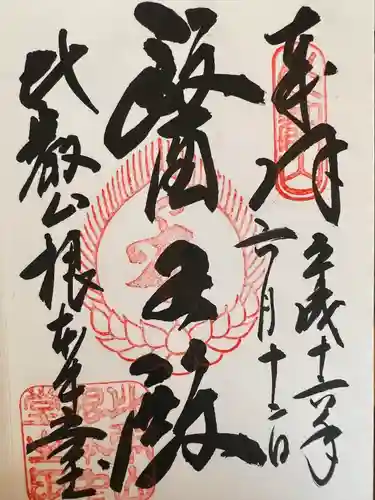 奉拝
平成十六年
六月十二日
醫王殿
比叡山根本中堂